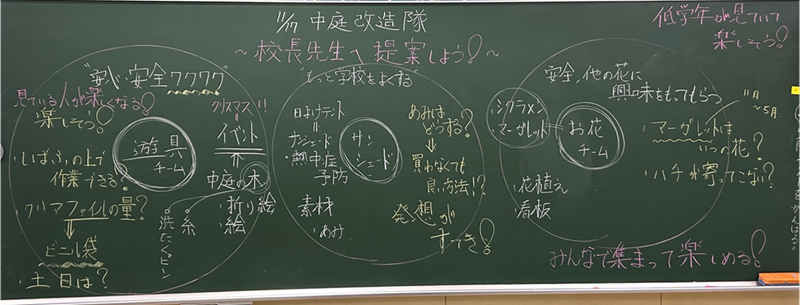 11/19 中庭改造隊
～校長先生へ提案しよう!～
低学年が見ていて
楽しそう!
"安心・安全ワクワク"
見ている人が楽しくなる!
楽しそう!
・しばふの上で
作業できる?
・クリアファイルの量?
ビニル袋
・土日は?
遊具
チーム
クリスマス!!
イベント
中庭の木
・折り絵
・絵
糸
洗たくピン
"もっと学校をよくする"
日よけテント
サンシェード
熱中症
予防
素材
・あみ
サン
シェード
あみは
どうする?
買わなくても
良い方法!?
発想が
すてき!
安全、他の花に
興味をもってもらう
・シクラメン
・マーグレット
お花
チーム
・花植え
・看板
11月
～5月
・マーグレットは
いつの花?
・ハチが寄ってこない?
みんなで集まって楽しめる!